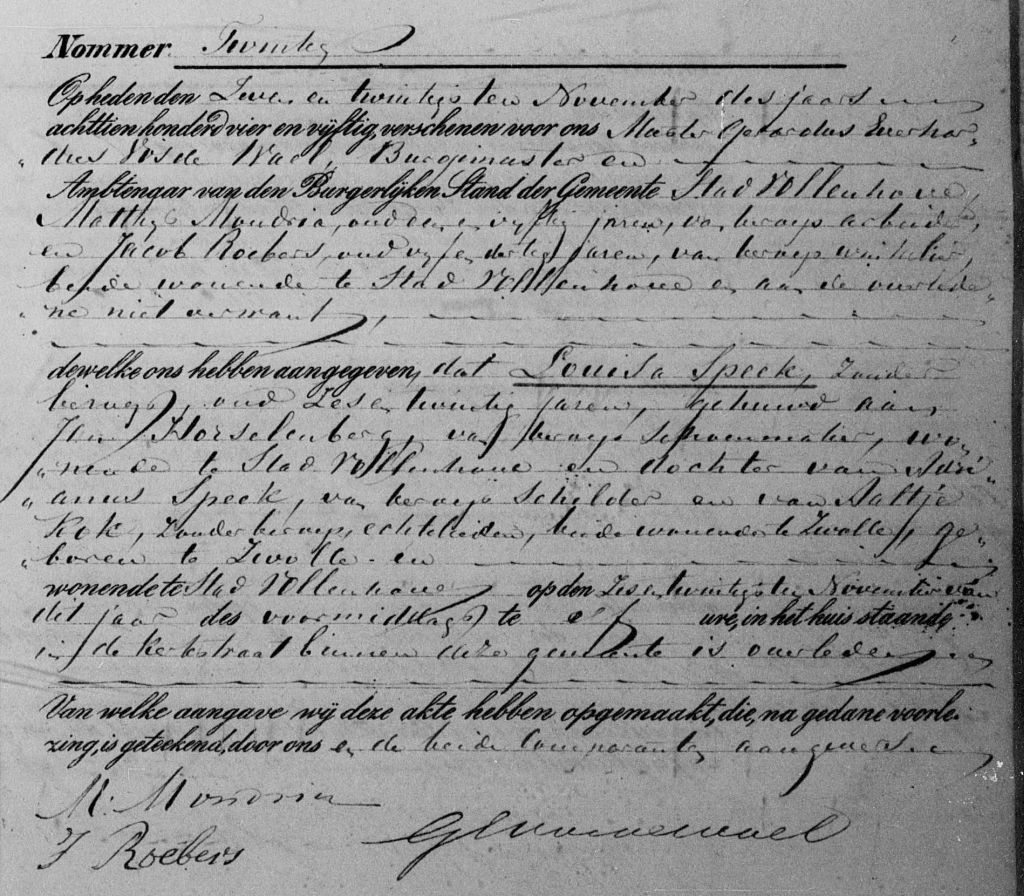 Nommer Twintig
Op heden den Zeven en twintigsten November des jaars
achttien honderd vier en vijftig, verschenen voor ons Meester Gerardus Everhar„
„dus Vos de Wael, Burgemeester en
Ambtenaar van den Burgerlijken Stand der Gemeente Stad Vollenhove
Matthijs Mondria, oud en vijftig jaren, van beroep arbeider,
en Jacob Roebers, oud vijf en dertig jaren, van beroep winkelier,
beide wonende te Stad Vollenhove en aan de overlede„
„ne niet verwant,
dewelke ons hebben aangegeven, dat Louisa Speek, zonder
beroep, oud Zes en twintig jaren, gehuwd aan
Jan Horselenberg, van beroep schoenmaker, wo„
„nende te Stad Vollenhove en dochter van Adri„
„anus Speek, van beroep schilder en van Aaltje
Kok, zonder beroep, echtelieden, beide wonende te Zwolle, ge„
„boren te Zwolle en
wonende te Stad Vollenhove op den Zes en twintigsten November van
dit jaar des voormiddags te elf ure, in het huis staande
in de Kerkstraat binnen deze gemeente is overleden
Van welke aangave wij deze akte hebben opgemaakt, die, na gedane voorle-
zing, is geteekend, door ons en de beide Comparanten aangevers
M. Mondria
J Roebers GEVosdeWael